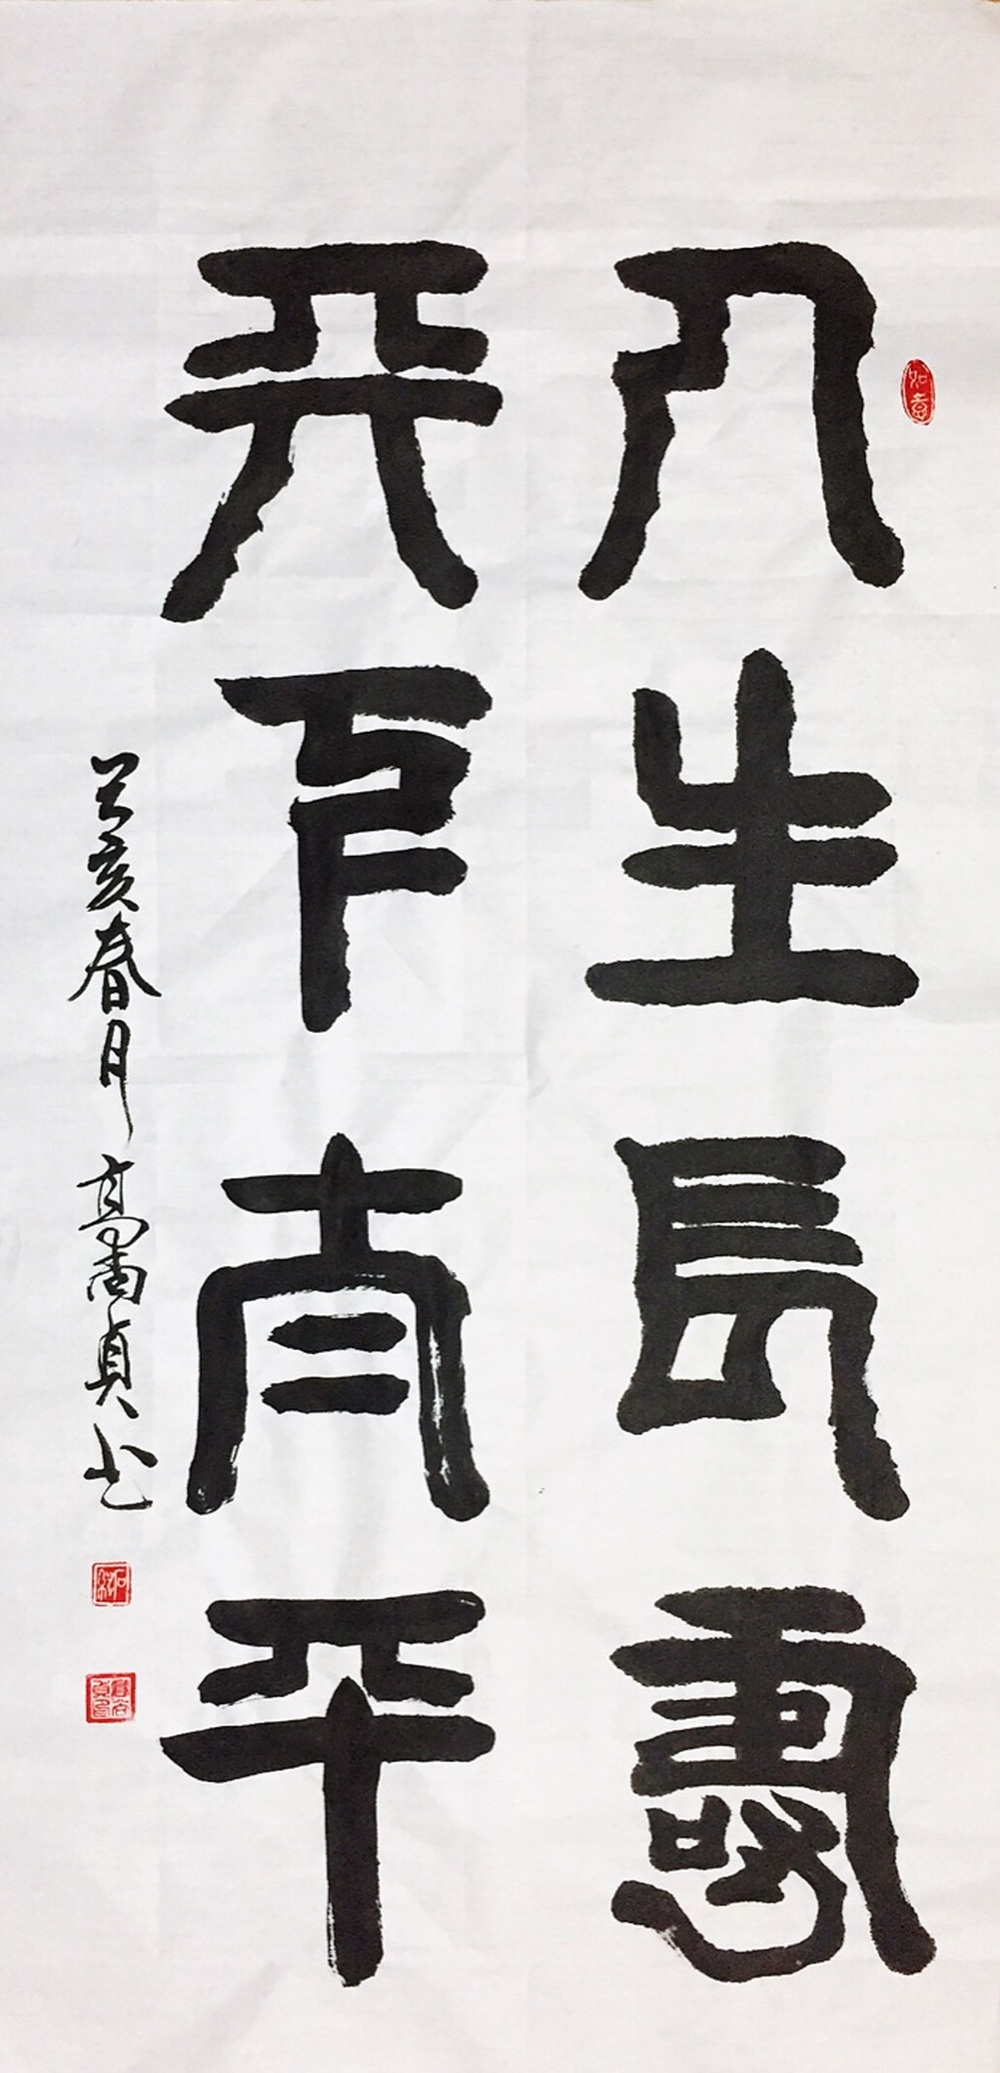 如意
人生長壽
天下太平
己亥春月高尚貞书